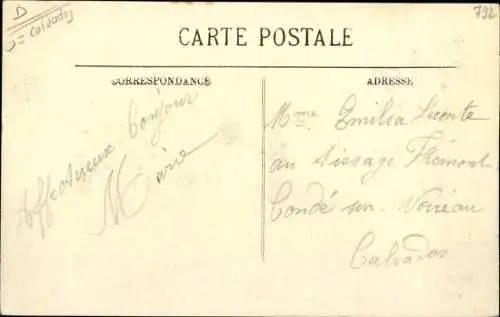 D
= Calvados
792
CARTE POSTALE
CORRESPONDANCE
ADRESSE
Affectueux bonjour
Marie
Mme Emilia Lecomte
au Tissage Flémont
Condé sur Noireau
Calvados